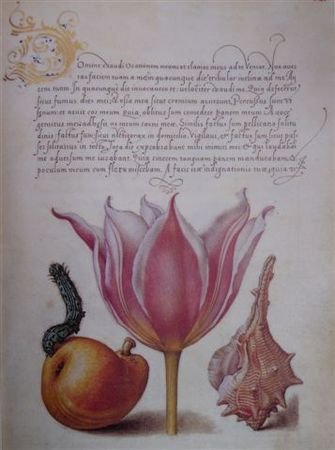 Domine exaudi Orationem meam: et clamor meus ad te Veniat. Non aver
tas faciem tuam a me: in quacunque die tribulor inclina ad me Au
rem tuam. In quacunque die invocavero te: velociter exaudi me. Quia defecerunt
sicut fumus dies mei: et ossa mea sicut cremium aruerunt. Percussus sum ut
et aruit cor meum: quia oblitus sum comedere panem meum. A voce
gemitus mei adhesit os meum carni mee. Similis factus sum pellicano solitu
dinis: factus sum sicut nicticorax in domicilio. Vigilavi, et factus sum sicut pas
ser solitarius in tecto. Tota die exprobrabant mihi inimici mei: et qui laudabāt
me adversum me iurabant. Quia cinerem tanquam panem manducabam, et
poculum meum cum fletu miscebam. A facie ire indignationis tue: quia